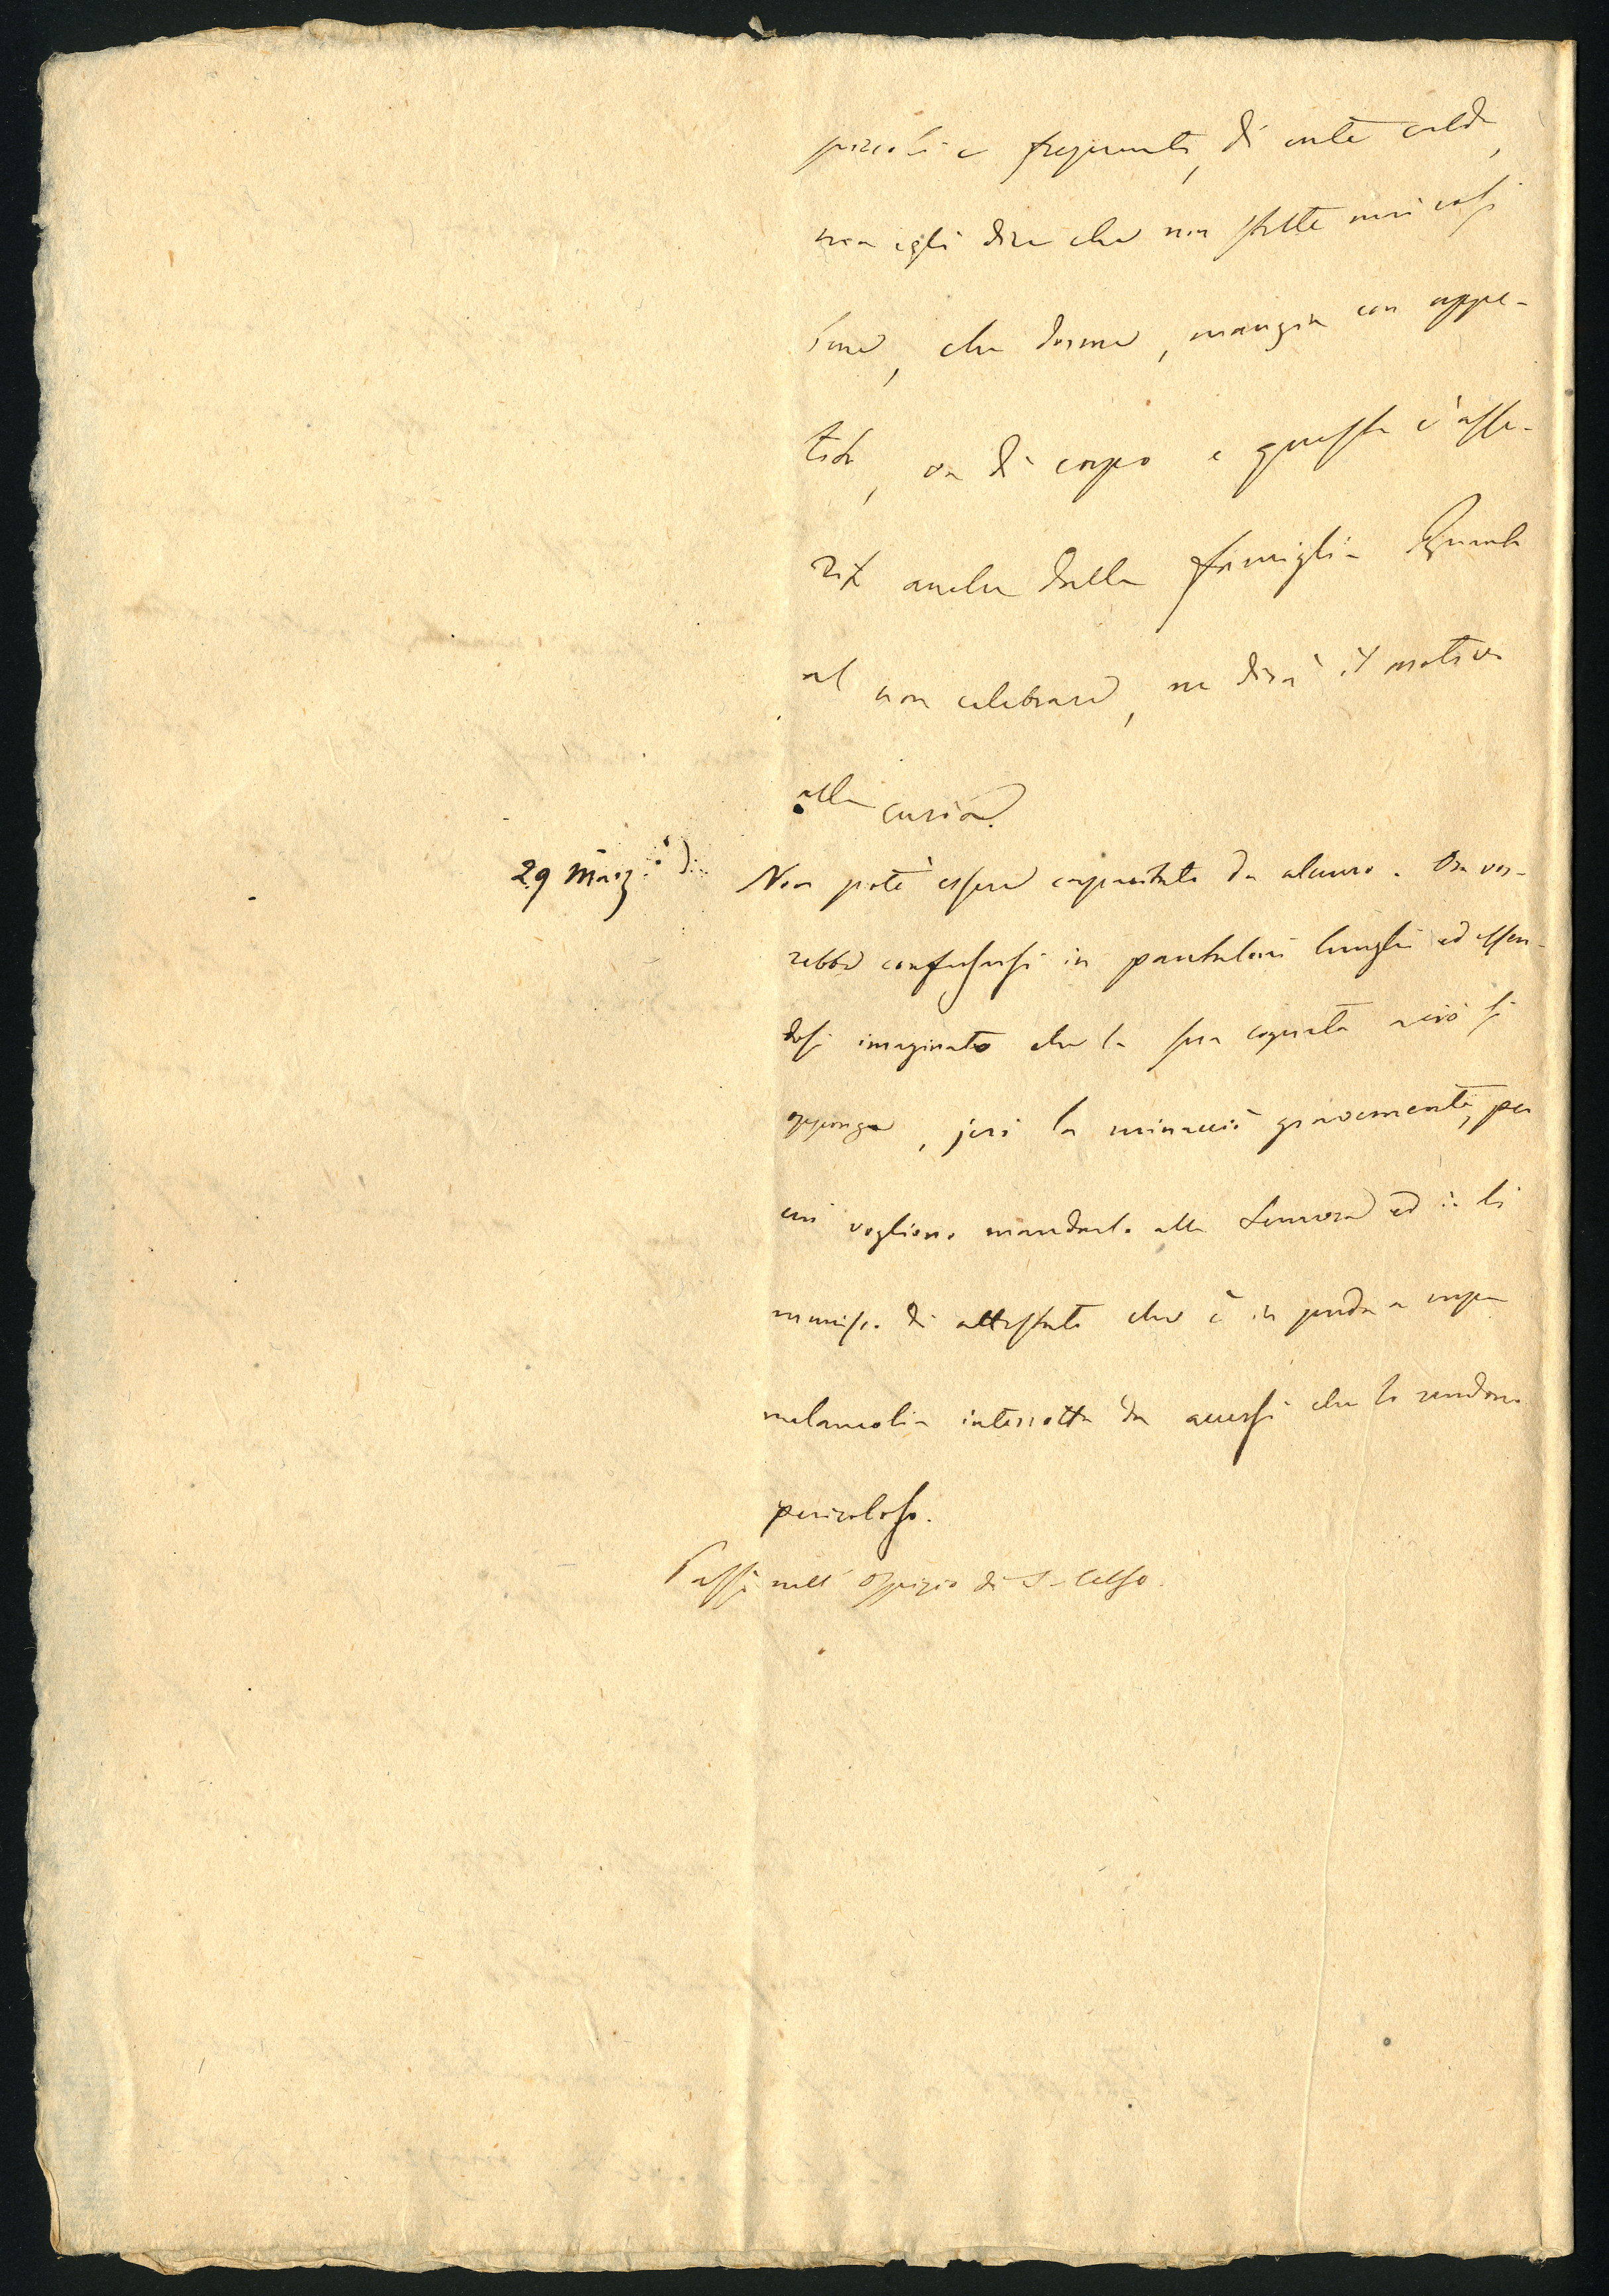 piccoli e frequenti, di cute calda,
ma egli dice che non stette mai così
bene, che dorme, mangia con appe-
tito, va di corpo e questo è asse-
rito anche dalla famiglia Quanto
al non celebrare, ne dirà il motivo
alla curia.
29 Marz.
Non potè essere capacitato da alcuno. Ora vor-
rebbe confessarsi in pantaloni lunghi ed essen-
dosi imaginato che la sua cognata a ciò si
opponga, jeri la minacciò gravemente, per
cui vogliono mandarlo alla Senavra ed io li
munisco di attestato che è in preda a cupa
melancolia interrotta da accessi che lo rendono
pericoloso.
Passò nell'Ospizio di S. Celso.